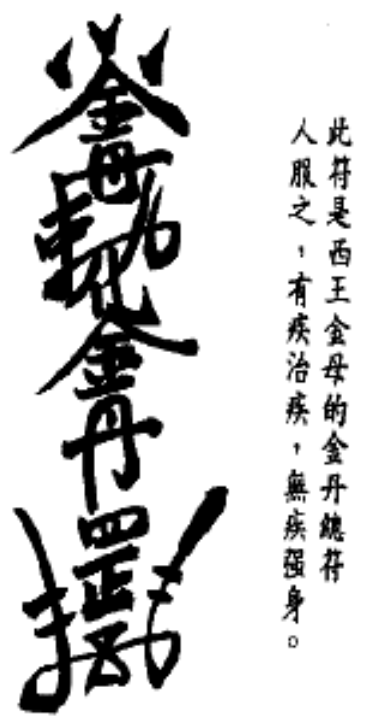 此符是西王金母的金丹總符
人服之，有疾治疾，無疾强身。
金母
化
金丹